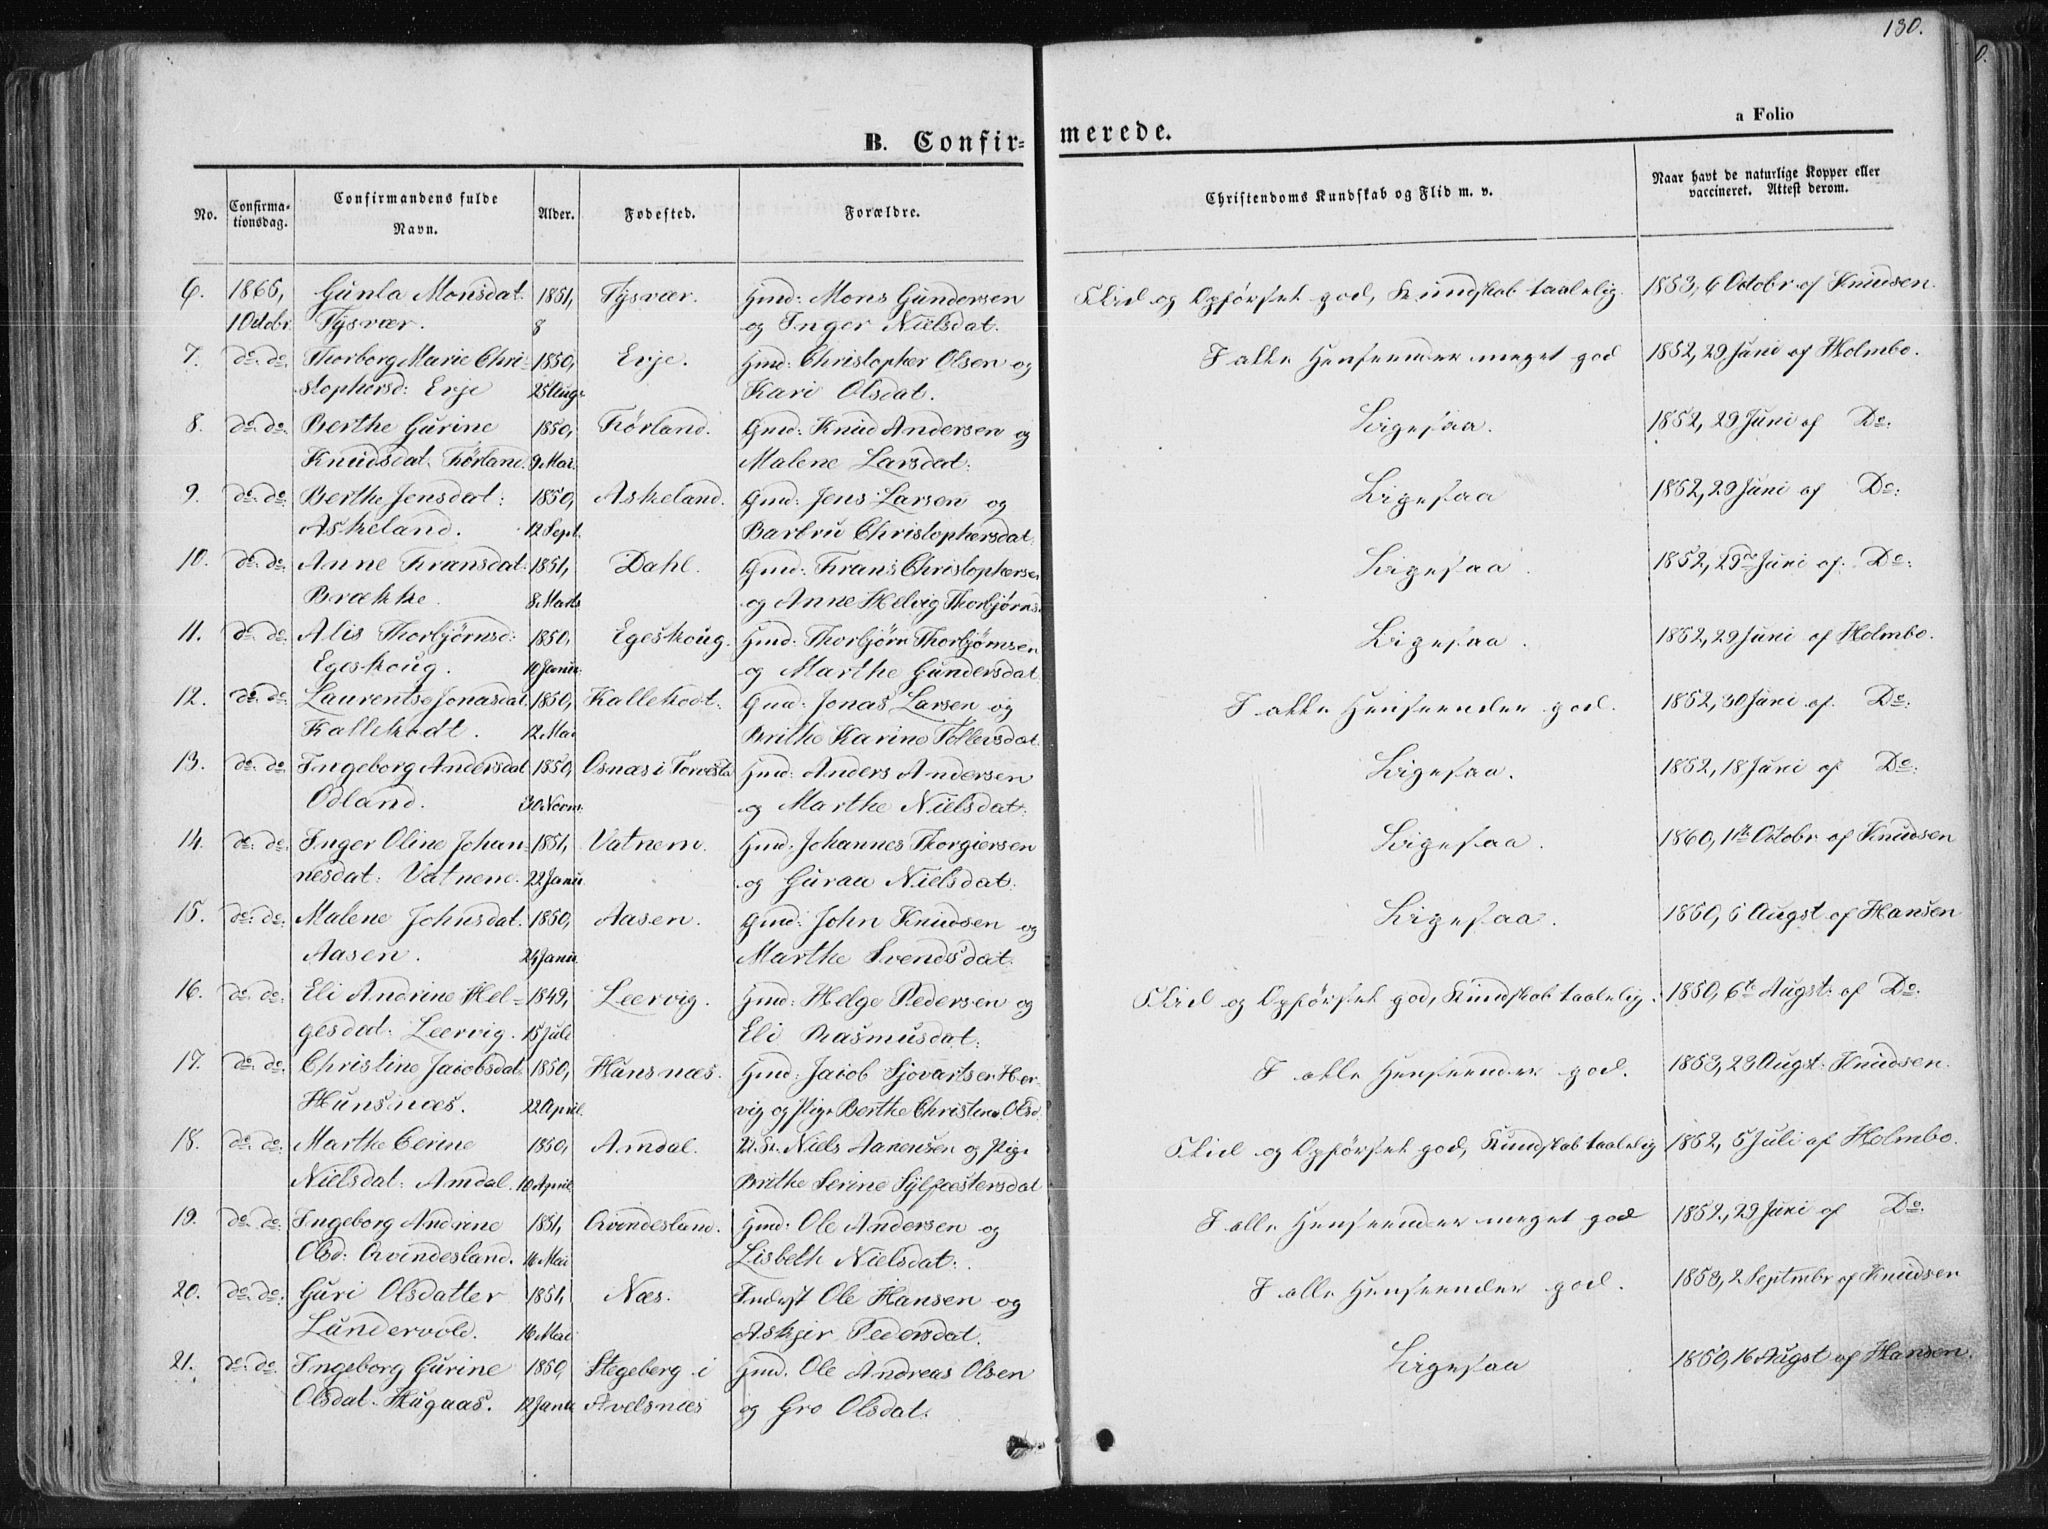 130.
a Folio
B. Confirmerede.
No. Confirmationsdag. Confirmandens fulde Navn. Alder. Fødested. Forældre. Christendoms Kundskab og Flid m. v. Naar havt de naturlige Kopper eller vaccineret. Attest derom.
6. 1865, Gunla Monsdat. 1851, Tysvær. Gmd: Mons Gundersen Flid og Opførsel god, Kundskab taalelig. 1853, 6 Octobr af Knudsen.
1 Octobr. Tysvær. 8 og Inger Nielsdat.
7. do. do. Thorborg Marie Chri- 1850, Erje. Gmd: Christopher Olsen og I alle Henseender meget god 1852, 29 Juni af Holmbo.
stophersd: Erje 25 Augs Kari Olsdat.
8. do. do. Berthe Gurine 1850, Førland. Gmd: Knud Andersen og Ligesaa. 1852, 29 Juni af Do:
Knudsdat. Førland. 9 Mai. Malene Larsdat:
9. do. do: Berthe Jensdat: 1850, Askeland. Gmd: Jens Larsen og Ligesaa 1852, 29 Juni af Do:
Askeland. 12 Sept. Barbru Christophersdat:
10. do. do: Anne Fransdat: 1851, Dahl. Gmd: Frans Christophersen Ligesaa. 1852, 29de Juni af Do:
Brække. 8 Marts og Anne Helvig Thorbjørns
11. do. do: Alis Thorbjørnsd: 1850, Egeskoug. Gmd: Thorbjørn Thorbjørnsen Ligesaa. 1852, 29 Juni af Holmbo.
Egeskoug. 10 Janu. og Marthe Gundersdat
12. do. do: Laurentse Jonasdat 1850, Kallekodt. Gmd: Jonas Larsen og I alle Henseender god. 1852, 30 Juni af Do:
Kallekodt. 12 Mai Brithe Karine Tollevsdat.
13. do. do: Ingeborg Andersdat 1850, Osnæs i Torvesta Gmd: Anders Andersen Ligesaa. 1852, 18 Juni af Do:
Odland. 30 Novm. og Marthe Nielsdat:
14. do: do: Inger Oline Johan- 1851, Vatnem. Gmd: Johannes Thorgiersen Ligesaa. 1860, 1te Octobr af Knudsen
nesdat: Vatnem. 22 Janu. og Gurau Nielsdat:
15. do: do: Malene Johnsdat. 1850, Aasen. Gmd: John Knudsen og Ligesaa. 1850, 6 Augst af Hansen
Aasen. 24 Janu. Marthe Svendsdat.
16. do: do: Eli Andrine Hel- 1849, Leervig. Gmd: Helge Pedersen og Flid og Opførsel god, Kundskab taalelig. 1850, 6te Augst: af Do.
gesdat: Leervig. 15 Juli Eli Rasmusdat:
17. do: do: Christine Jacobsdat 1850, Hunsnæs. Gmd: Jacob Sjovartsen Her- I alle Henseender god. 1853, 23 Augst: Knudsen.
Hunsnæs. 22 April. vig og Pige Berthe Christine Olsd:
18. do. do: Marthe Cerine 1850, Amdal. Niels Aanensen og Pige Flid og Opførsel god, Kundskab taalelig 1852, 5 Juli af Holmbo.
Nielsdat: Amdal. 10 April Brithe Serine Sylfestersdat
19. do: do: Ingeborg Andrine 1851, Qvindesland. Gmd: Ole Andersen og I alle Henseender meget god 1852, 29 Juni af Do.
Olsd: Qvindesland. 16 Mai Lisbeth Nielsdat:
20. do: do: Guri Olsdatter 1851, Næs. Inderst Ole Hansen og I alle Henseender god. 1853, 2 Septmbr af Knudsen
Lundervold. 16 Mai Askjer Pedersdat.
21. do: do: Ingeborg Gurine 1850, Stegeberg i Gmd. Ole Andreas Olsen Ligesaa 1850, 16 Augst af Hansen.
Olsdat. Hugaas. 12 Janu. Avelsnæs og Gro Olsdat.